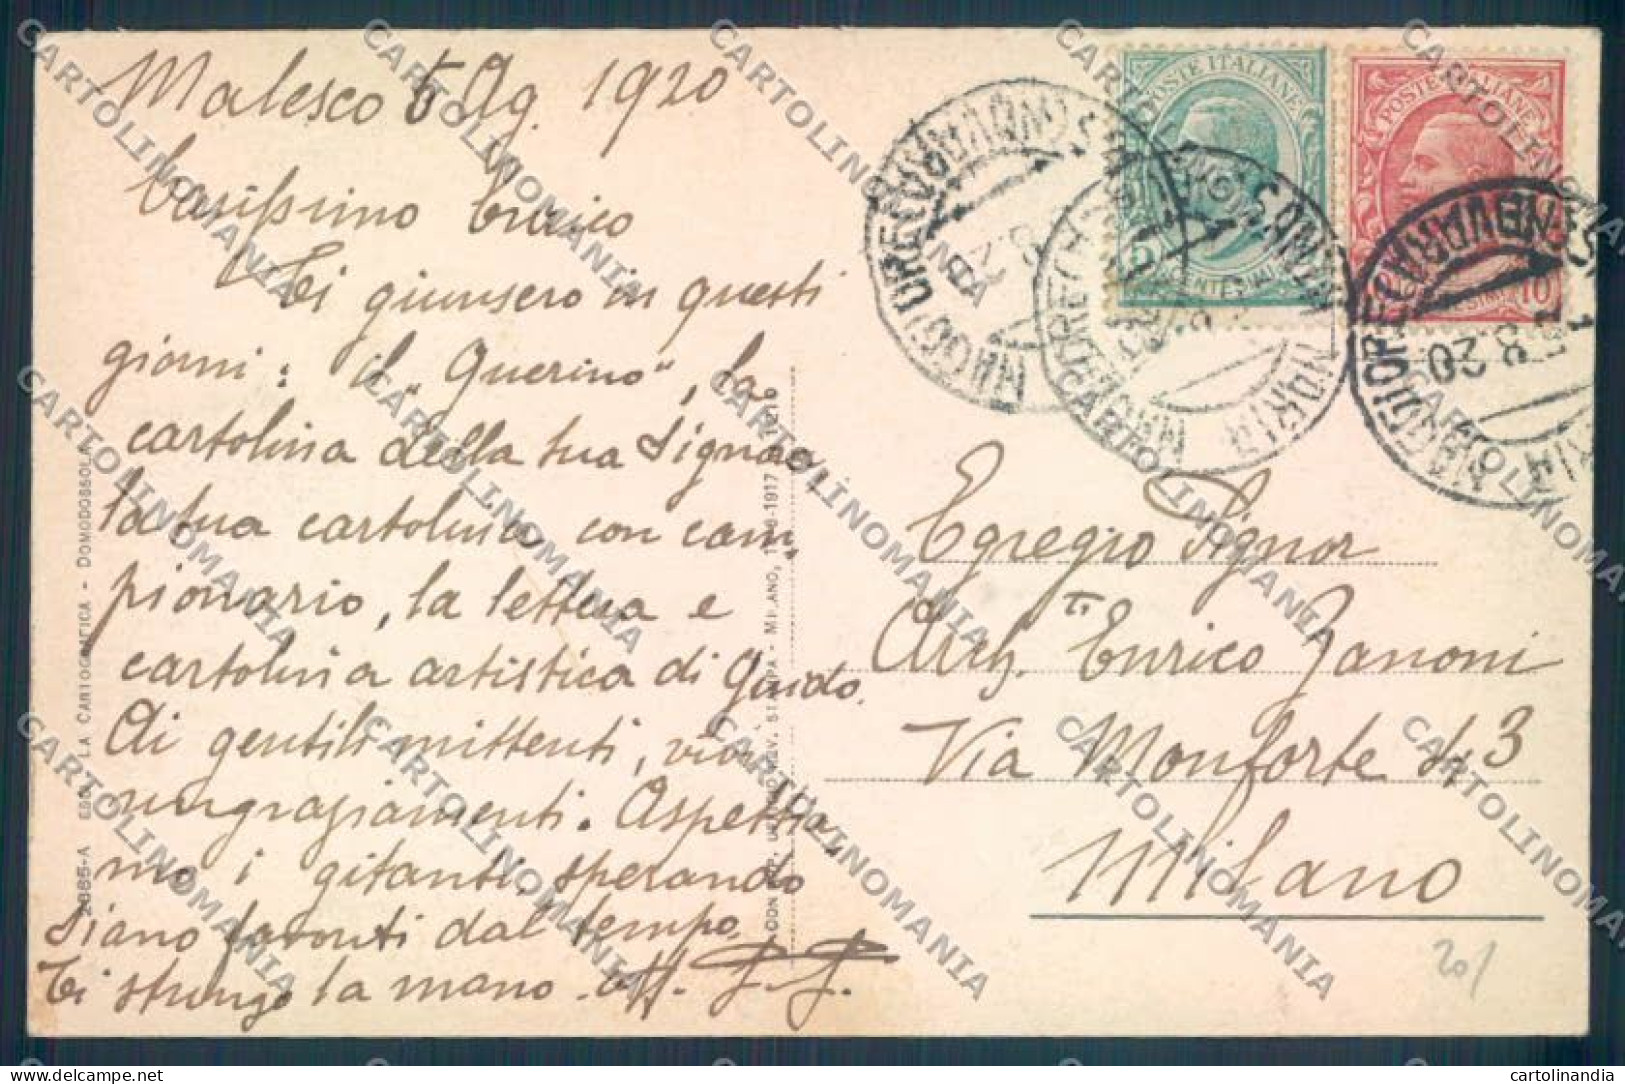 Malesco 5 Ag. 1920
Carissimo Enrico
Ti giunsero in questi
giorni: il "Querino", la
cartolina della tua Signora
la tua cartolina con cam,
pionario, la lettera e
cartolina artistica di Guido.
Ai gentili mittenti, vivi
ringraziamenti. Aspettia,
mo i gitanti, sperando
siano favoriti dal tempo.
Ti stringo la mano. aff.
POSTE ITALIANE
5
CENTESIMI
POSTE ITALIANE
10
8.20
Egregio Signor
Arch. Enrico Zanoni
Via Monforte N. 3
Milano
20/
2885-A EDIT. LA CARTOGRAFICA - DOMODOSSOLA
STAMPA - MILANO, 1917
CARTOLINOMANIA
cartolinandia